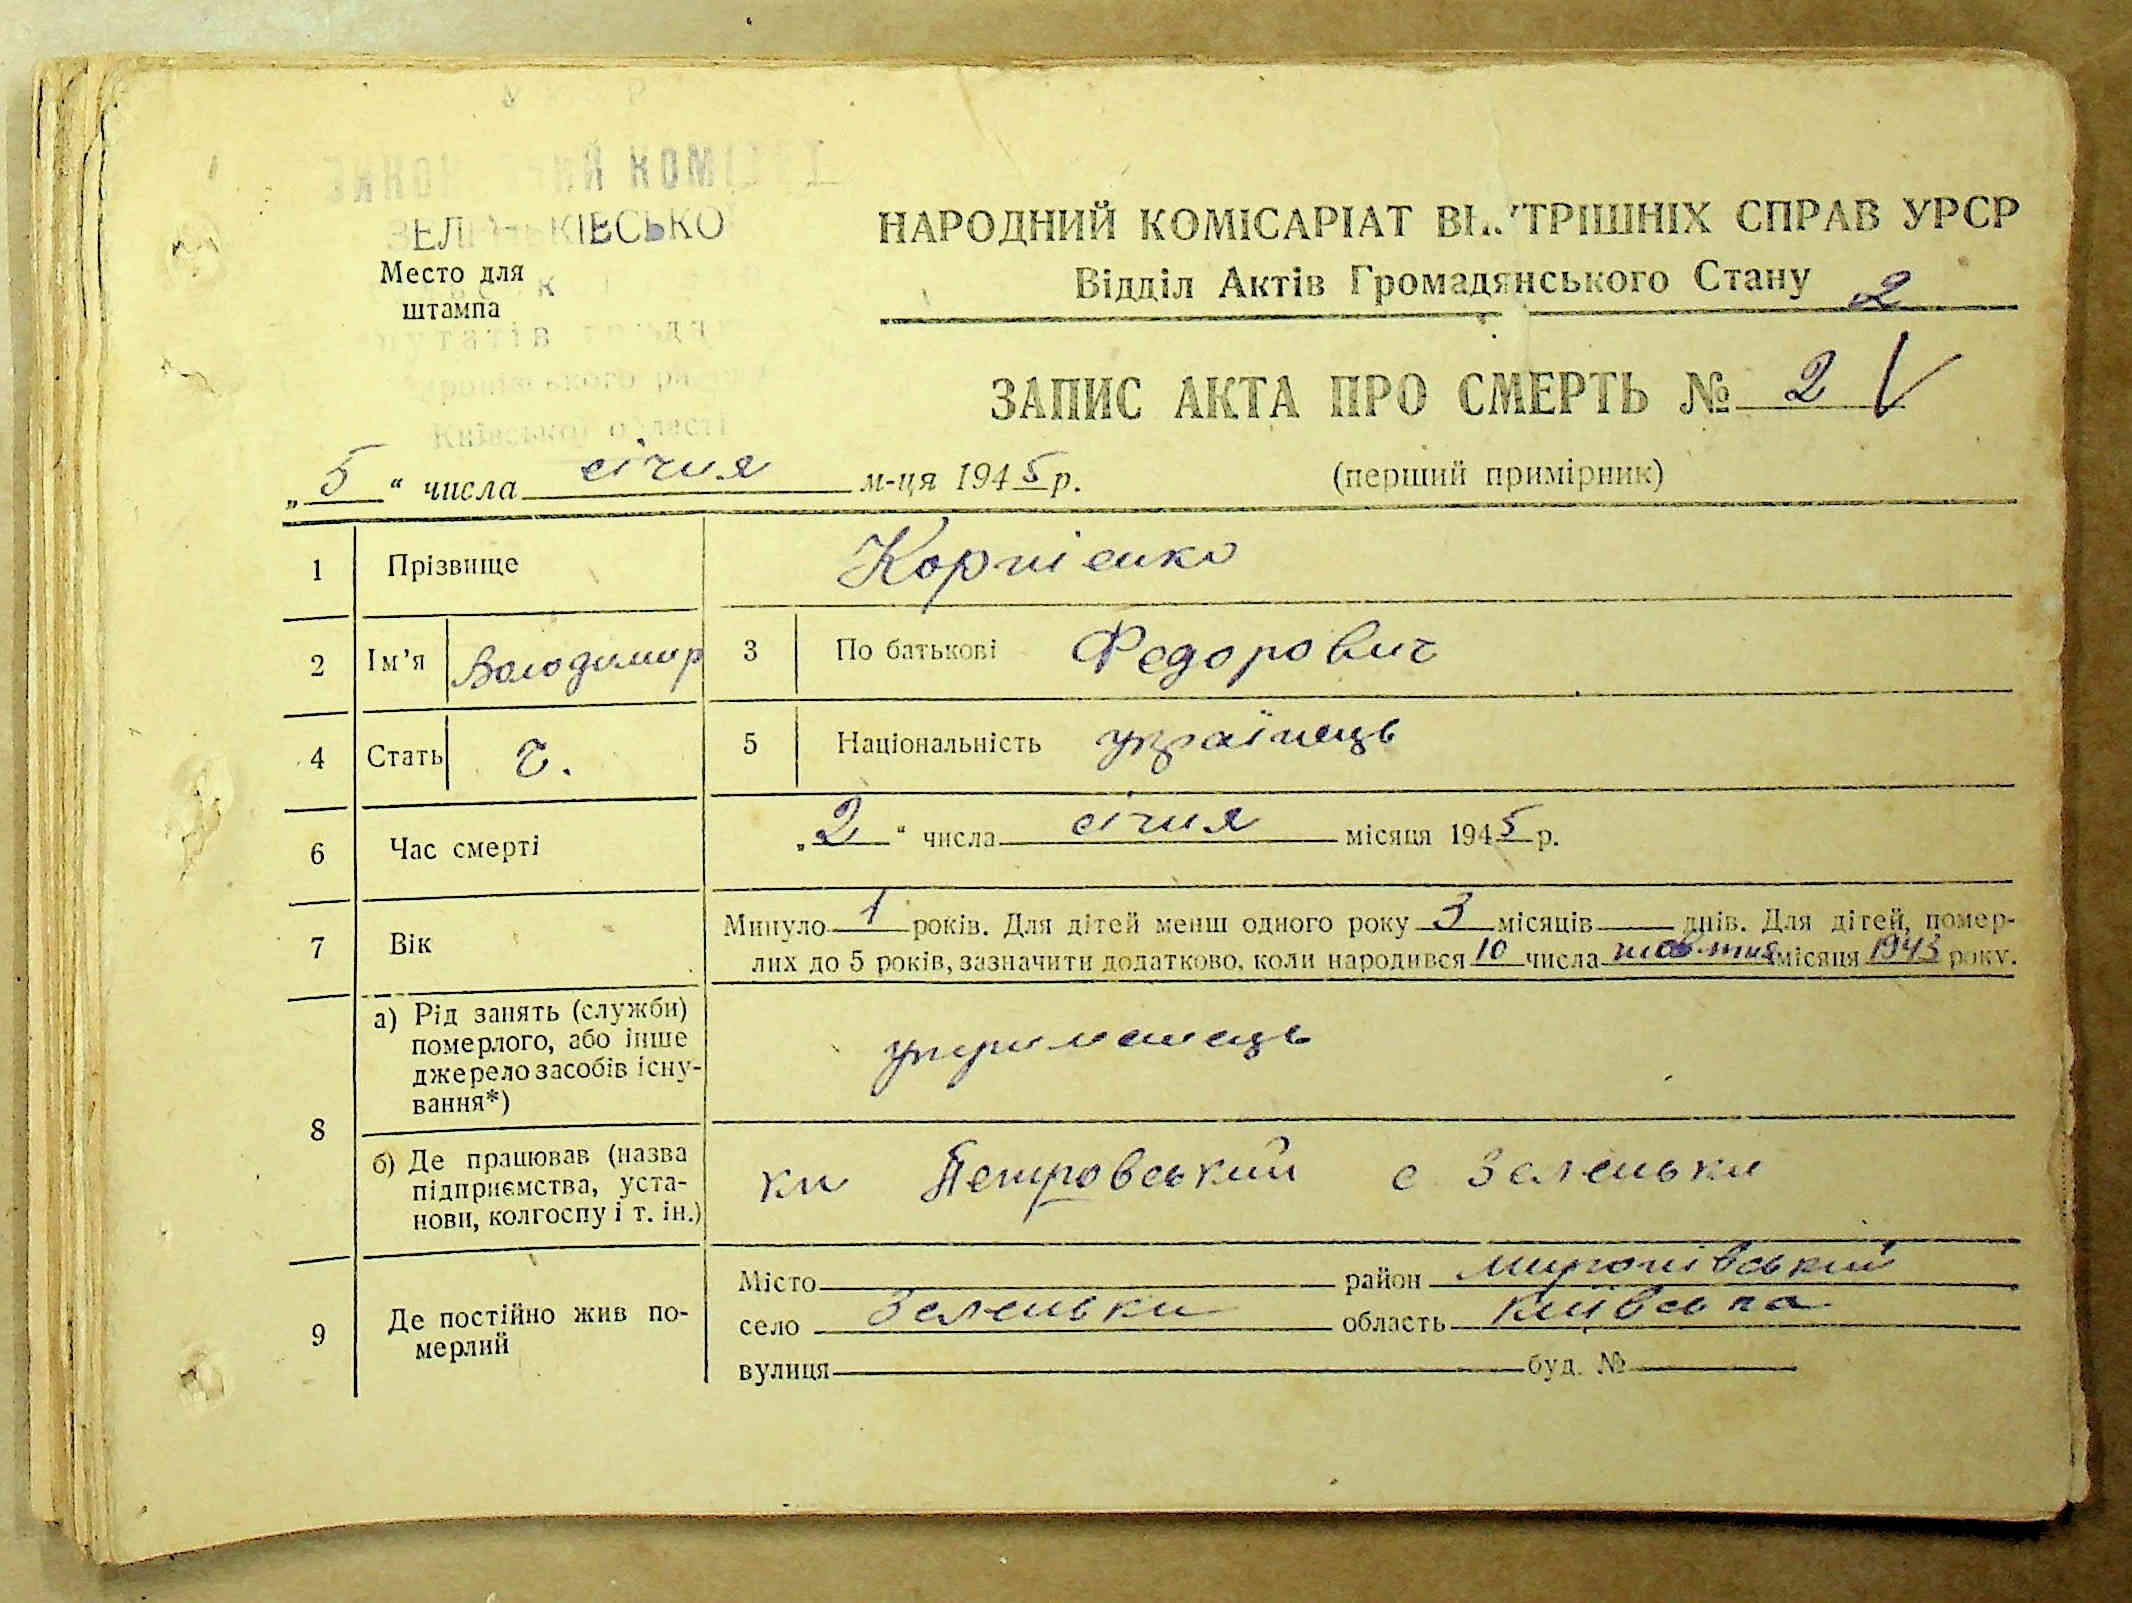 КОМІТЕТ
ЗЕЛЕНЬКІВСЬКО
Место для
штампа
Київської області
НАРОДНИЙ КОМІСАРІАТ ВНУТРІШНІХ СПРАВ УРСР
Відділ Актів Громадянського Стану 2
ЗАПИС АКТА ПРО СМЕРТЬ № 2 V
„5“ числа січня м-ця 1945 р.
(перший примірник)
1 Прізвище Корнієнко
2 Ім'я Володимир 3 По батькові Федорович
4 Стать ч. 5 Національність українець
6 Час смерті „2“ числа січня місяця 1945 р.
7 Вік Минуло 1 років. Для дітей менш одного року 3 місяців днів. Для дітей, помер-
лих до 5 років, зазначити додатково, коли народився 10 числа жовтня місяця 1943 року.
8 а) Рід занять (служби)
померлого, або інше
джерело засобів існу-
вання*)
утриманець
б) Де працював (назва
підприємства, уста-
нови, колгоспу і т. ін.)
кп Петровський с Зеленьки
9 Де постійно жив по-
мерлий
Місто район миронівський
село Зеленьки область київська
вулиця буд. №